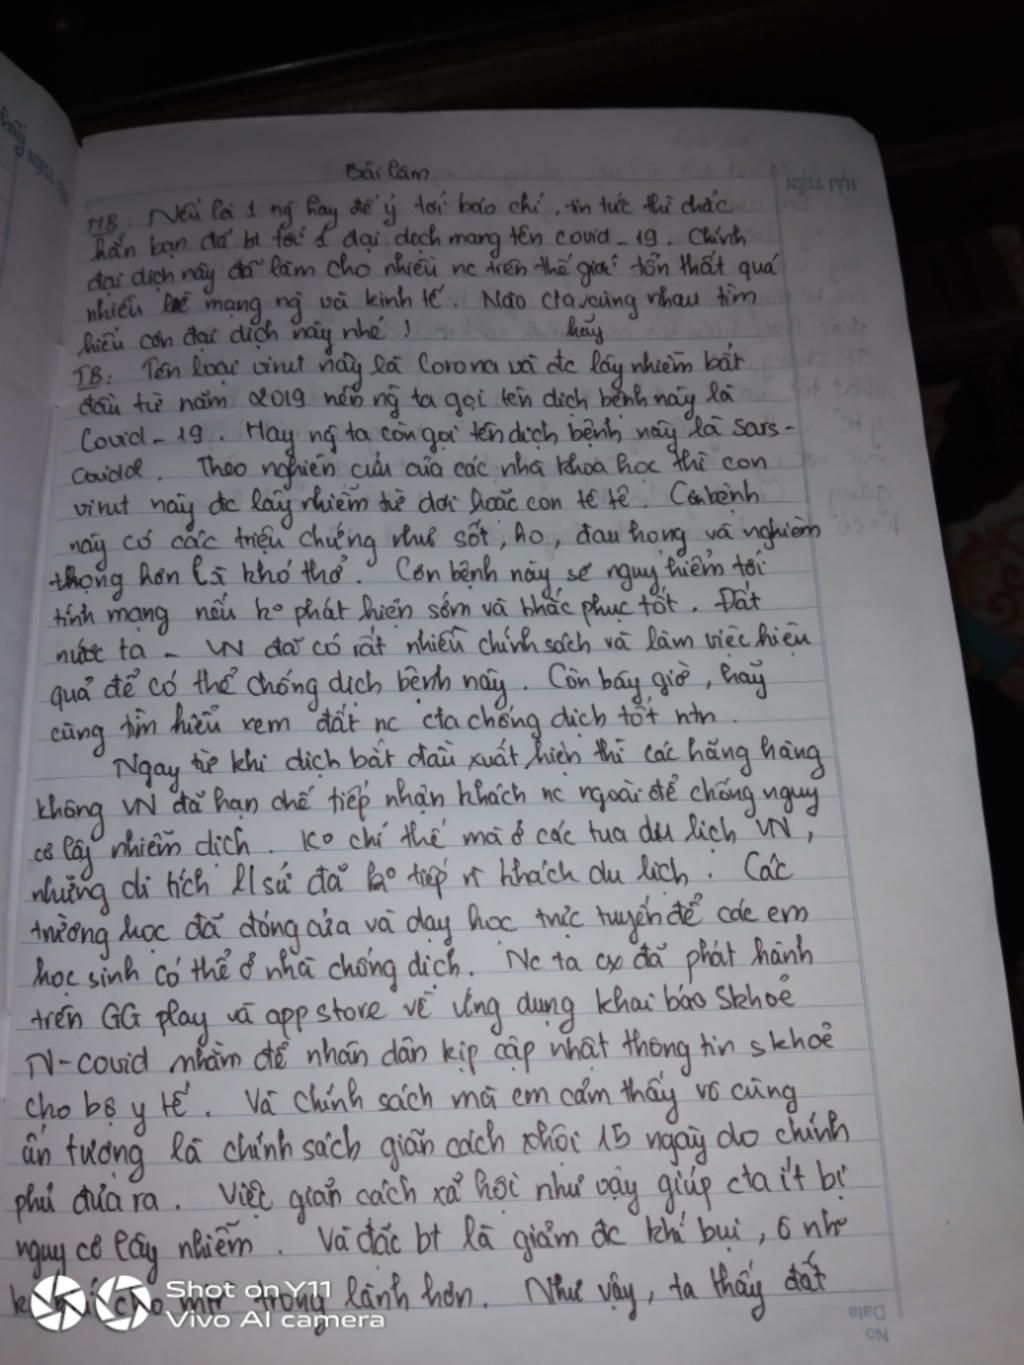 Bài làm
MB: Nếu là 1 ng hay để ý tới báo chí, tin tức thì chắc
hẳn bạn đã bt tới 1 đại dịch mang tên covid-19. Chính
đại dịch này đã làm cho nhiều nc trên thế giới tổn thất quá
nhiều về mạng ng và kinh tế. Nào cta cùng nhau tìm
hãy
hiểu cơn đại dịch này nhé!
TB: Tên loại virut này là Corona và đc lây nhiễm bắt
đầu từ năm 2019 nên ng ta gọi tên dịch bệnh này là
Covid-19. Hay ng ta còn gọi tên dịch bệnh này là Sars-
Theo nghiên cứu của các nhà khoa học thì con
virut này đc lây nhiễm từ dơi hoặc con tê tê. Cơn bệnh
này có các triệu chứng như sốt, ho, đau họng và nghiêm
trọng hơn là khó thở. Cơn bệnh này sẽ nguy hiểm tới
tính mạng nếu ko phát hiện sớm và khắc phục tốt. Đất
nước ta - VN đã có rất nhiều chính sách và làm việc hiệu
quả để có thể chống dịch bệnh này. Còn bây giờ, hãy
cùng tìm hiểu xem đất nc cta chống dịch tốt ntn.
Ngay từ khi dịch bắt đầu xuất hiện thì các hãng hàng
không VN đã hạn chế tiếp nhận khách nc ngoài để chống nguy
cơ lây nhiễm dịch. Ko chỉ thế mà ở các tua du lịch VN,
những di tích lsử đã ko tiếp khách du lịch. Các
trường học đã đóng cửa và dạy học trực tuyến để các em
học sinh có thể ở nhà chống dịch. Nc ta cx đã phát hành
trên GG play và app store về ứng dụng khai báo skhoẻ
N-covid nhằm để nhân dân kịp cập nhật thông tin skhoẻ
cho bộ y tế. Và chính sách mà em cảm thấy vô cùng
ấn tượng là chính sách giãn cách xhội 15 ngày do chính
phủ đưa ra. Việc giãn cách xã hội như vậy giúp cta ít bị
nguy cơ lây nhiễm. Và đặc bt là giảm đc khí bụi, ô nh
cho mtr trong lành hơn. Như vậy, ta thấy đất
Shot on Y11
Vivo AI camera
HẢI TIẾN
No.
Date